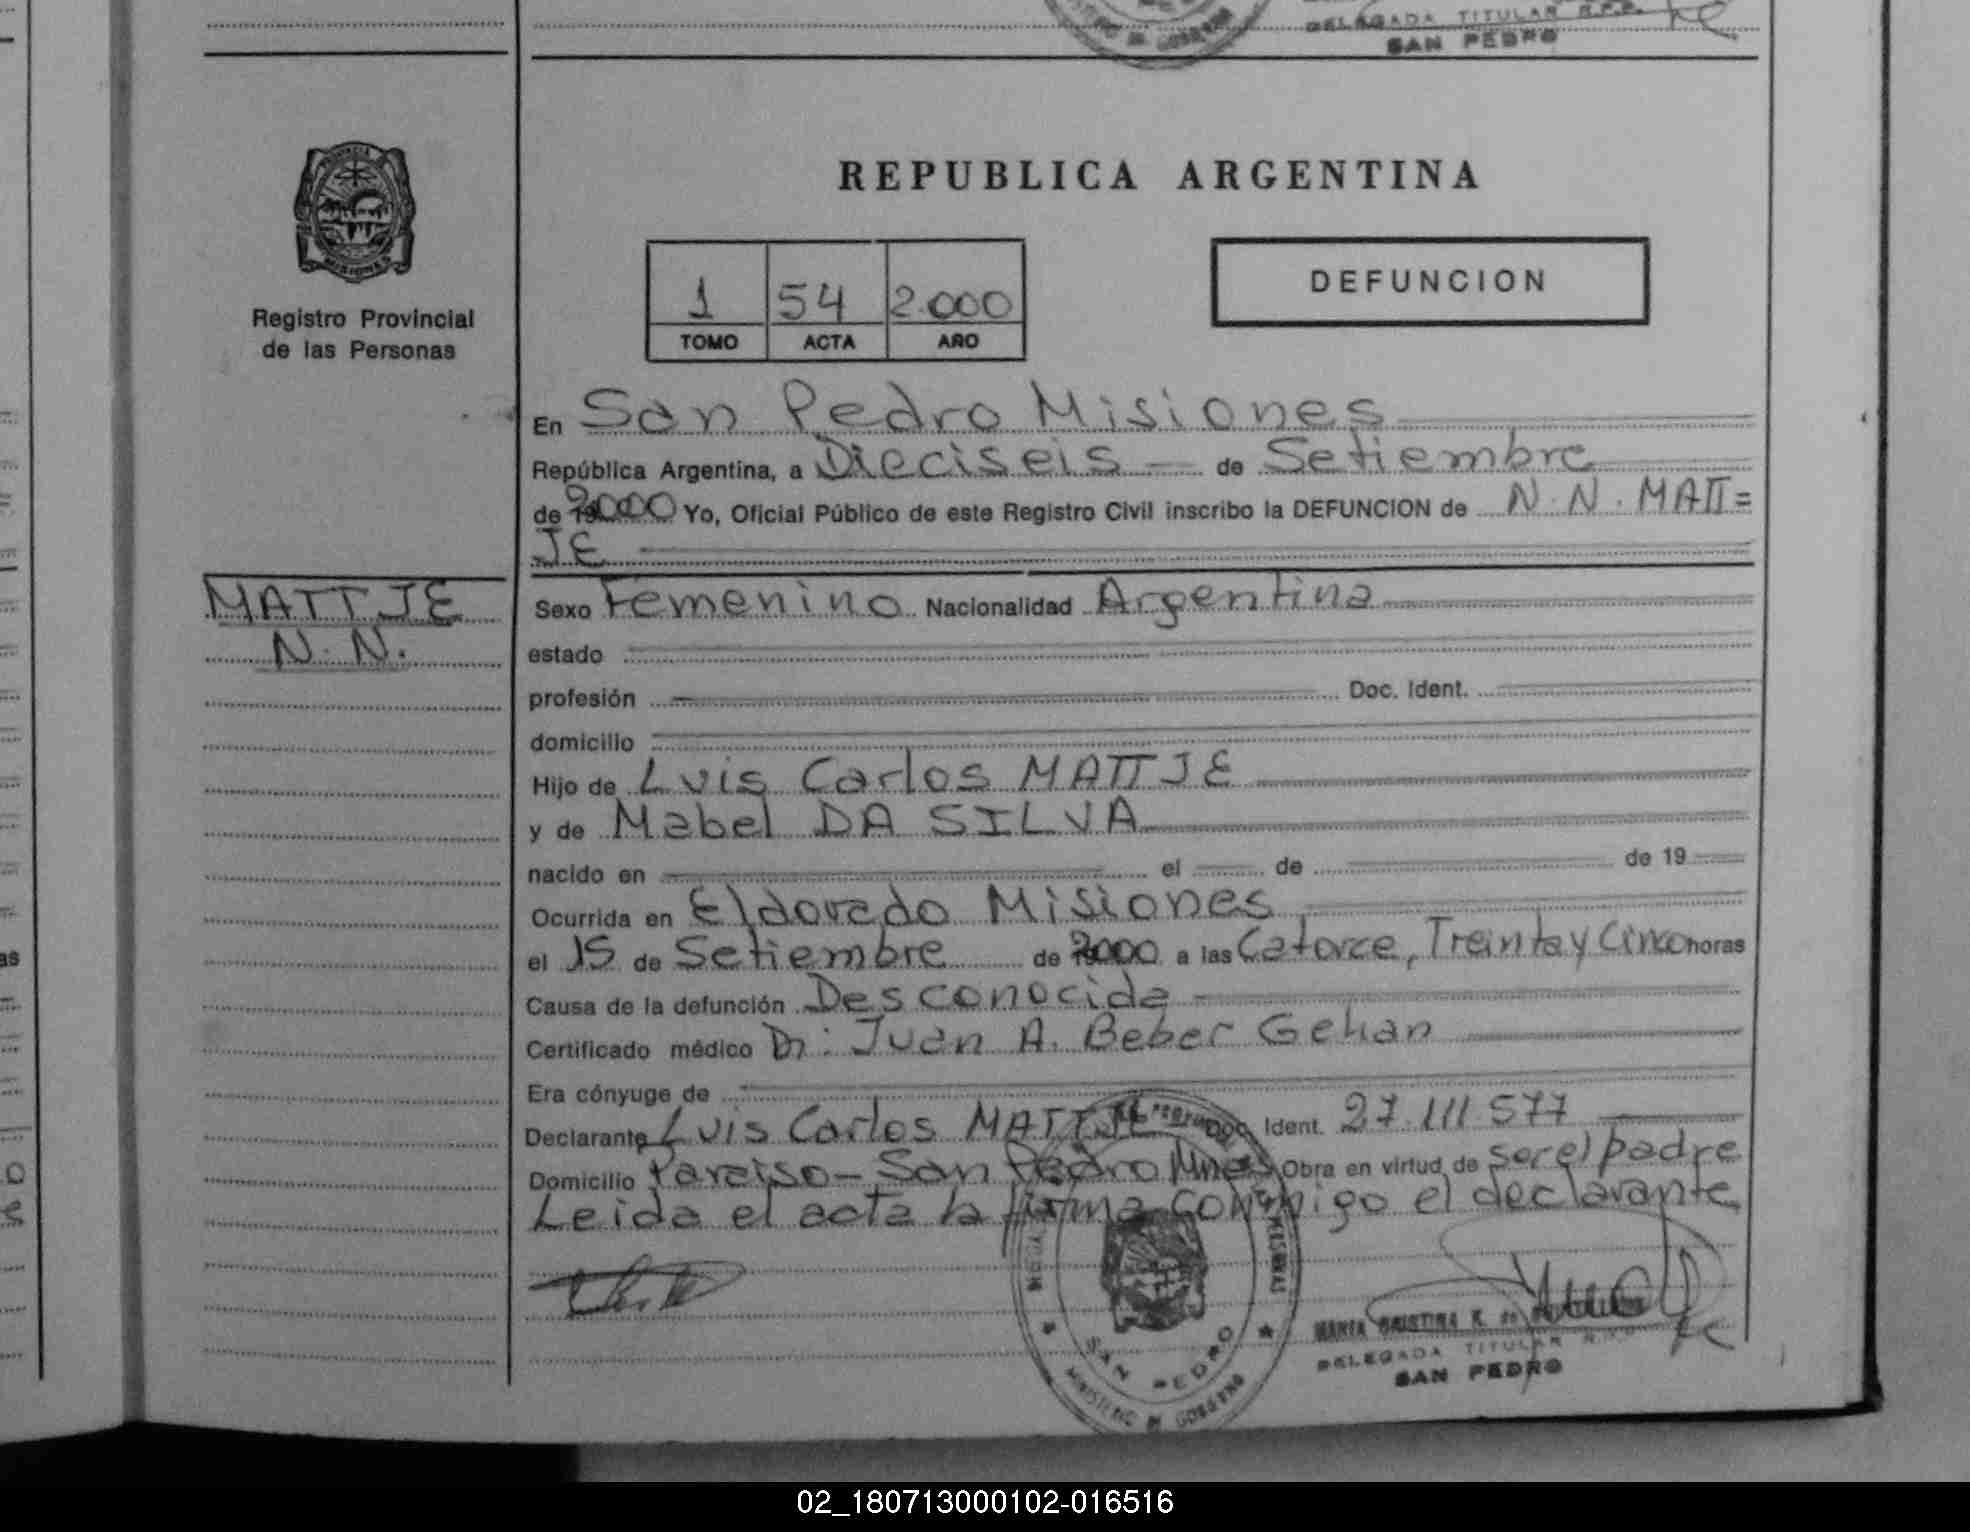 DELEGADA TITULAR R.P.P.
SAN PEDRO
MINISTERIO DE GOBIERNO
PROVINCIA DE
MISIONES
Registro Provincial
de las Personas
REPUBLICA ARGENTINA
1 54 2.000
TOMO ACTA AÑO
DEFUNCION
En San Pedro Misiones
República Argentina, a Dieciseis de Setiembre
de 2000 Yo, Oficial Público de este Registro Civil inscribo la DEFUNCION de N. N. MATT=
JE
MATTJE
N. N.
Sexo Femenino Nacionalidad Argentina
estado
profesión Doc. Ident.
domicilio
Hijo de Luis Carlos MATTJE
y de Mabel DA SILVA
nacido en el de de 19
Ocurrida en Eldorado Misiones
el 15 de Setiembre de 2000 a las Catorce, Treinta y Cinco horas
Causa de la defunción Desconocida
Certificado médico Dr: Juan A. Beber Gehan
Era cónyuge de
Declarante Luis Carlos MATTJE Doc. Ident. 27.111.577
Domicilio Paraiso - San Pedro Mnes Obra en virtud de ser el padre
Leida el acta la firma conmigo el declarante
MARIA CRISTINA K. de
DELEGADA TITULAR R.P.P.
SAN PEDRO
SAN PEDRO
MINISTERIO DE GOBIERNO
02_180713000102-016516